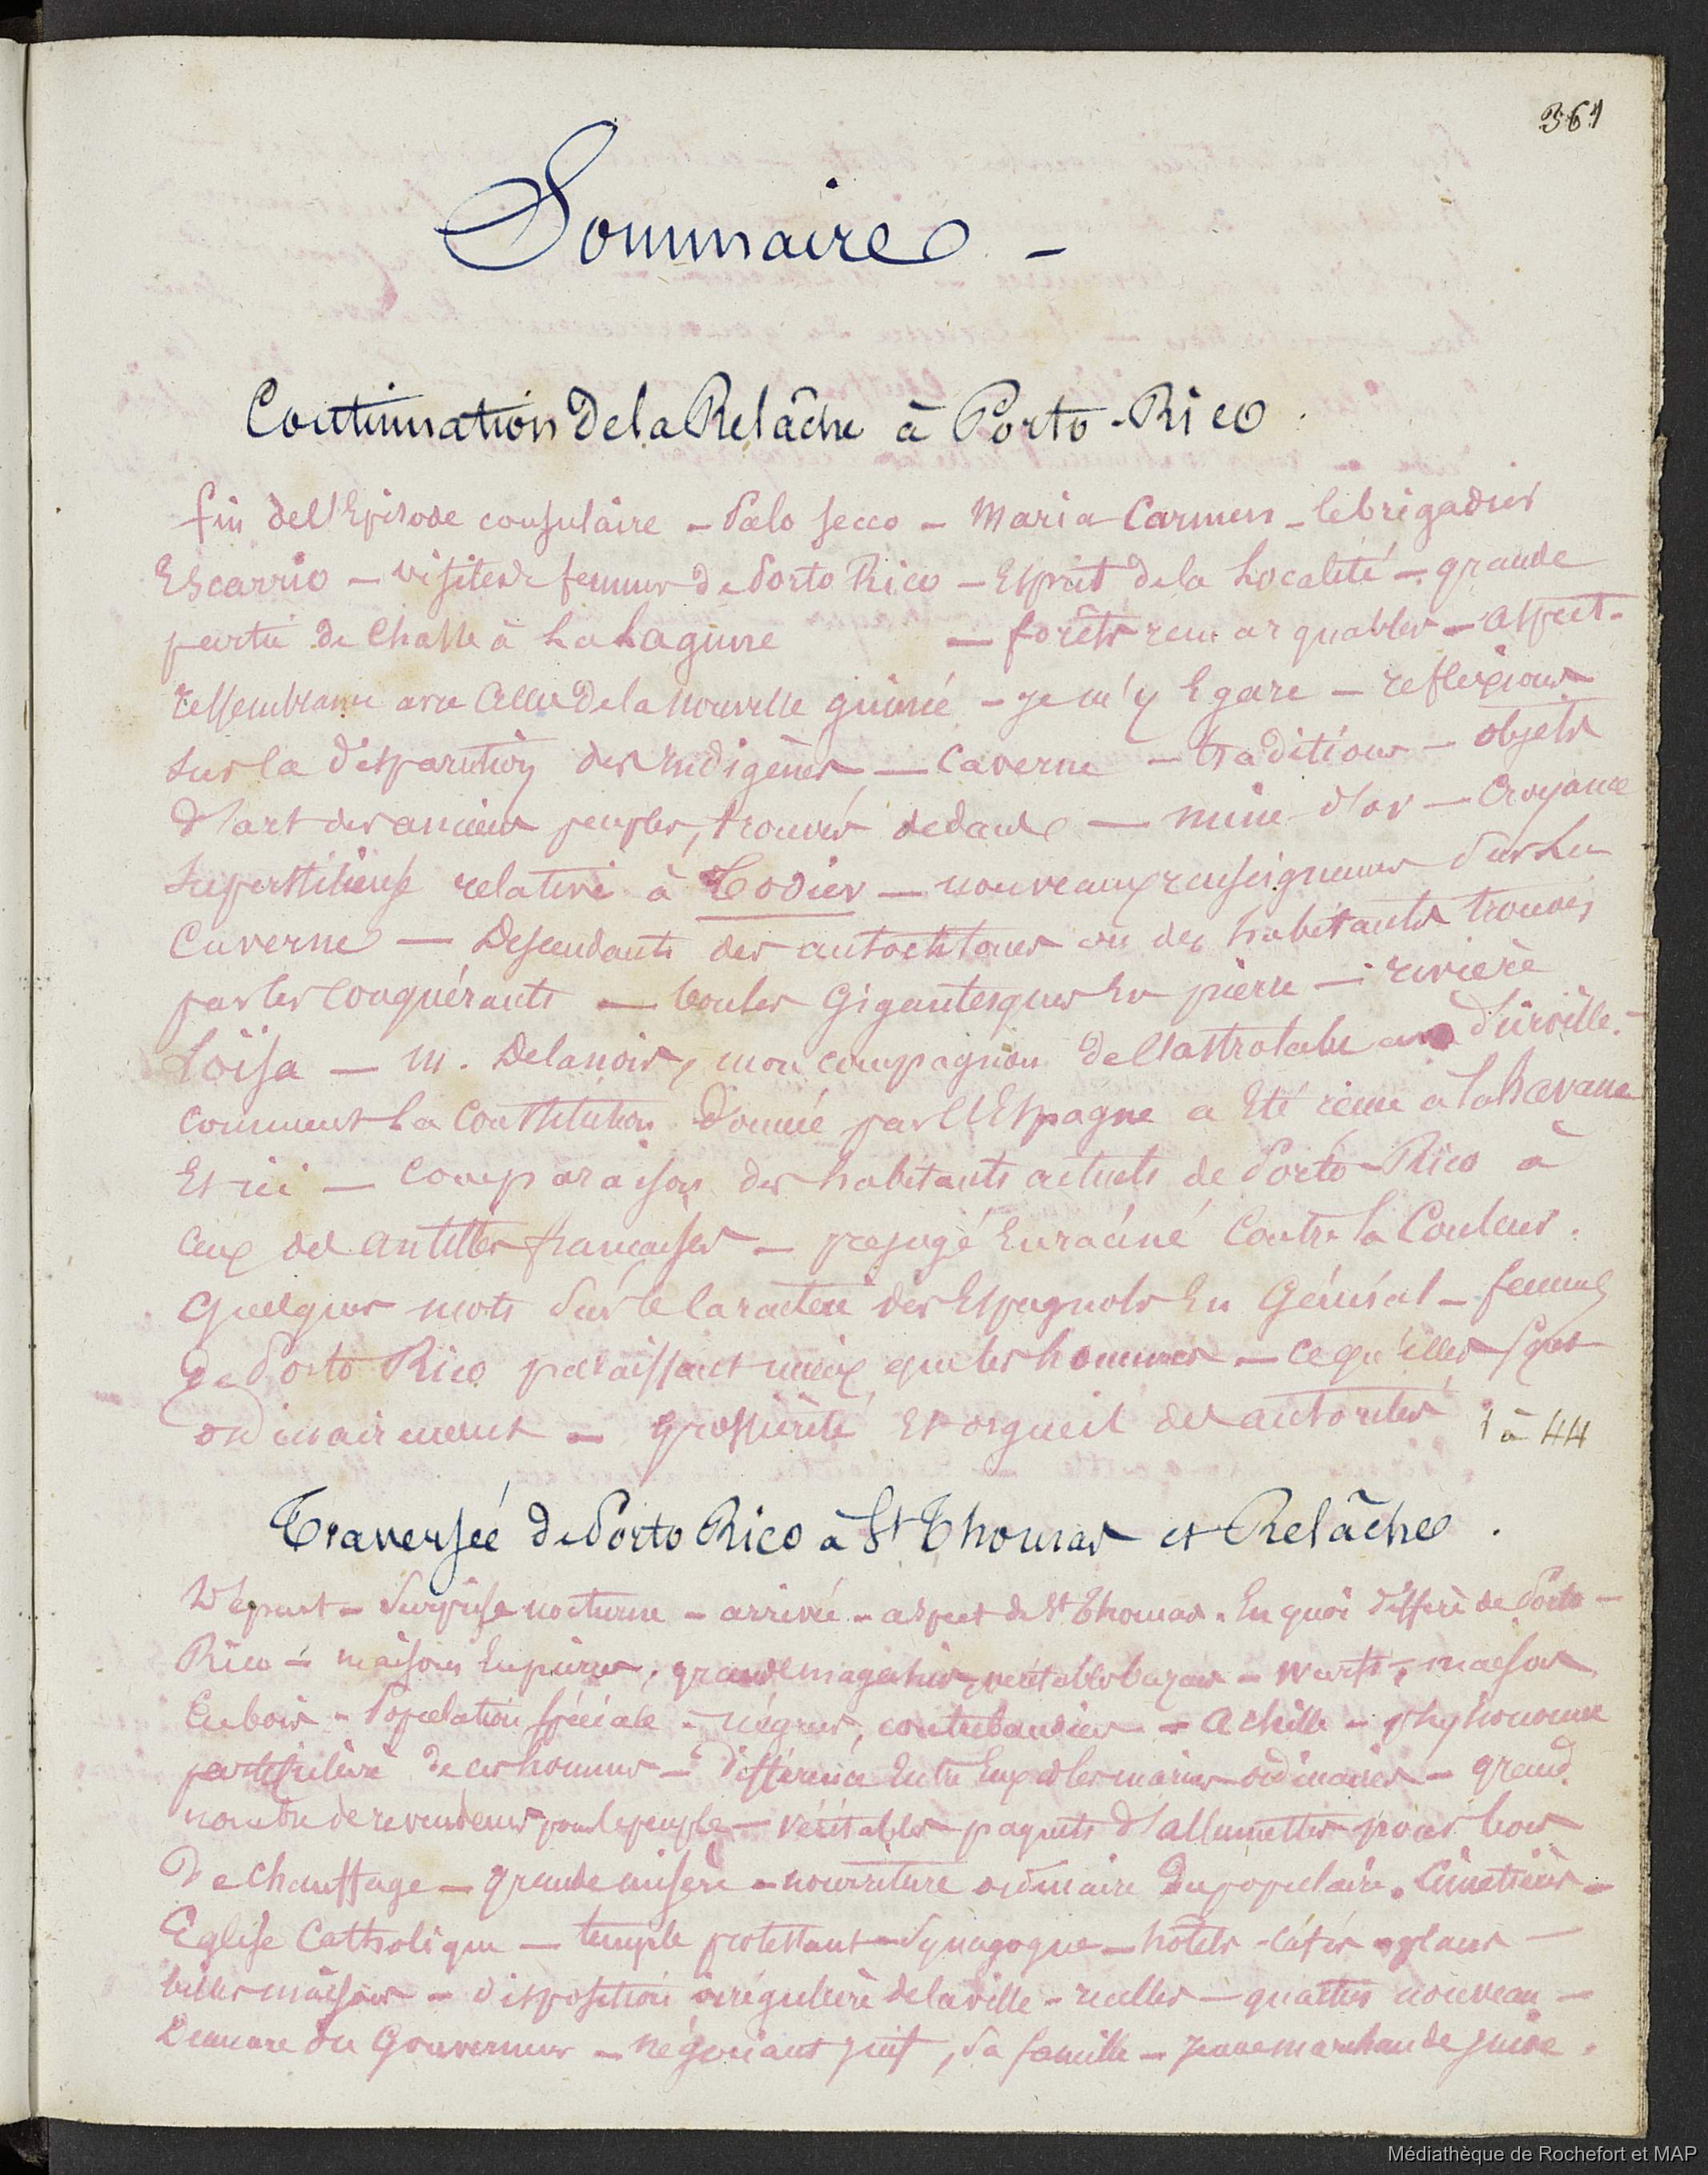 361
Sommaire -
Continuation De la Relâche à Porto-Rico.
fin de l'Episode consulaire - Palo secco - Maria Carmen - le brigadier
Escarrio - visites de femmes De Porto Rico - Esprit de la Localité - grande
partie de Chasse à La Lagune - forêts remarquables - aspect -
ressemblance avec Celles De la Nouvelle guinée - je m'y Egare - reflexions
sur la disparution des indigènes - Caverne - traditions - objets
d'art des anciens peuples, trouvés dedans - mine d'or - Croyance
superstitieuse relative à - nouveaux renseignemens sur La
Caverne - Descendants des autochtones ou des habitants trouvés
par les Conquérants - boules Gigantesques En pierre - rivière
Loïsa - M. Delanoix, mon compagnon de l'astrolabe d'urville.-
comment La Constitution donnée par l'Espagne a Eté recue a la havane
Et ici - Comparaison des habitants actuels de Porto-Rico à
ceux des antilles francaises - prejugé Enraciné Contre la Couleur.
Quelques mots sur le Caractere des Espagnols En Général - femmes
De Porto Rico paraissant mieux que les hommes - ce qu'elles font
ordinairement - grossièreté Et orgueil des autorités 1 à 44
Traversée de Porto Rico à St Thomas et Relâche.
Départ - Surprise nocturne - arrivée - aspect de St Thomas. En quoi diffère de Porto -
Rico - maisons En pierres, grands magasins, véritables bazars - warfs, maisons
En bois - Population spéciale - nègres, contrebandiers - Achille - physionomie
particulière de ces hommes - différence Entre Eux et les marins ordinaires - grand
nombre de revendeurs pour le peuple - véritables paquets d'allumettes pour bois
De chauffage - grande misère - nourriture ordinaire Du populaire. Cimetières -
Eglise Catholique - temple protestant - Synagogue - hôtels - cafés - places -
belles maisons - disposition irrégulière de la ville - ruelles - quartier nouveau -
Demeure du Gouverneur - négociant juif, sa famille - jeune marchande juive.
Médiathèque de Rochefort et MAP